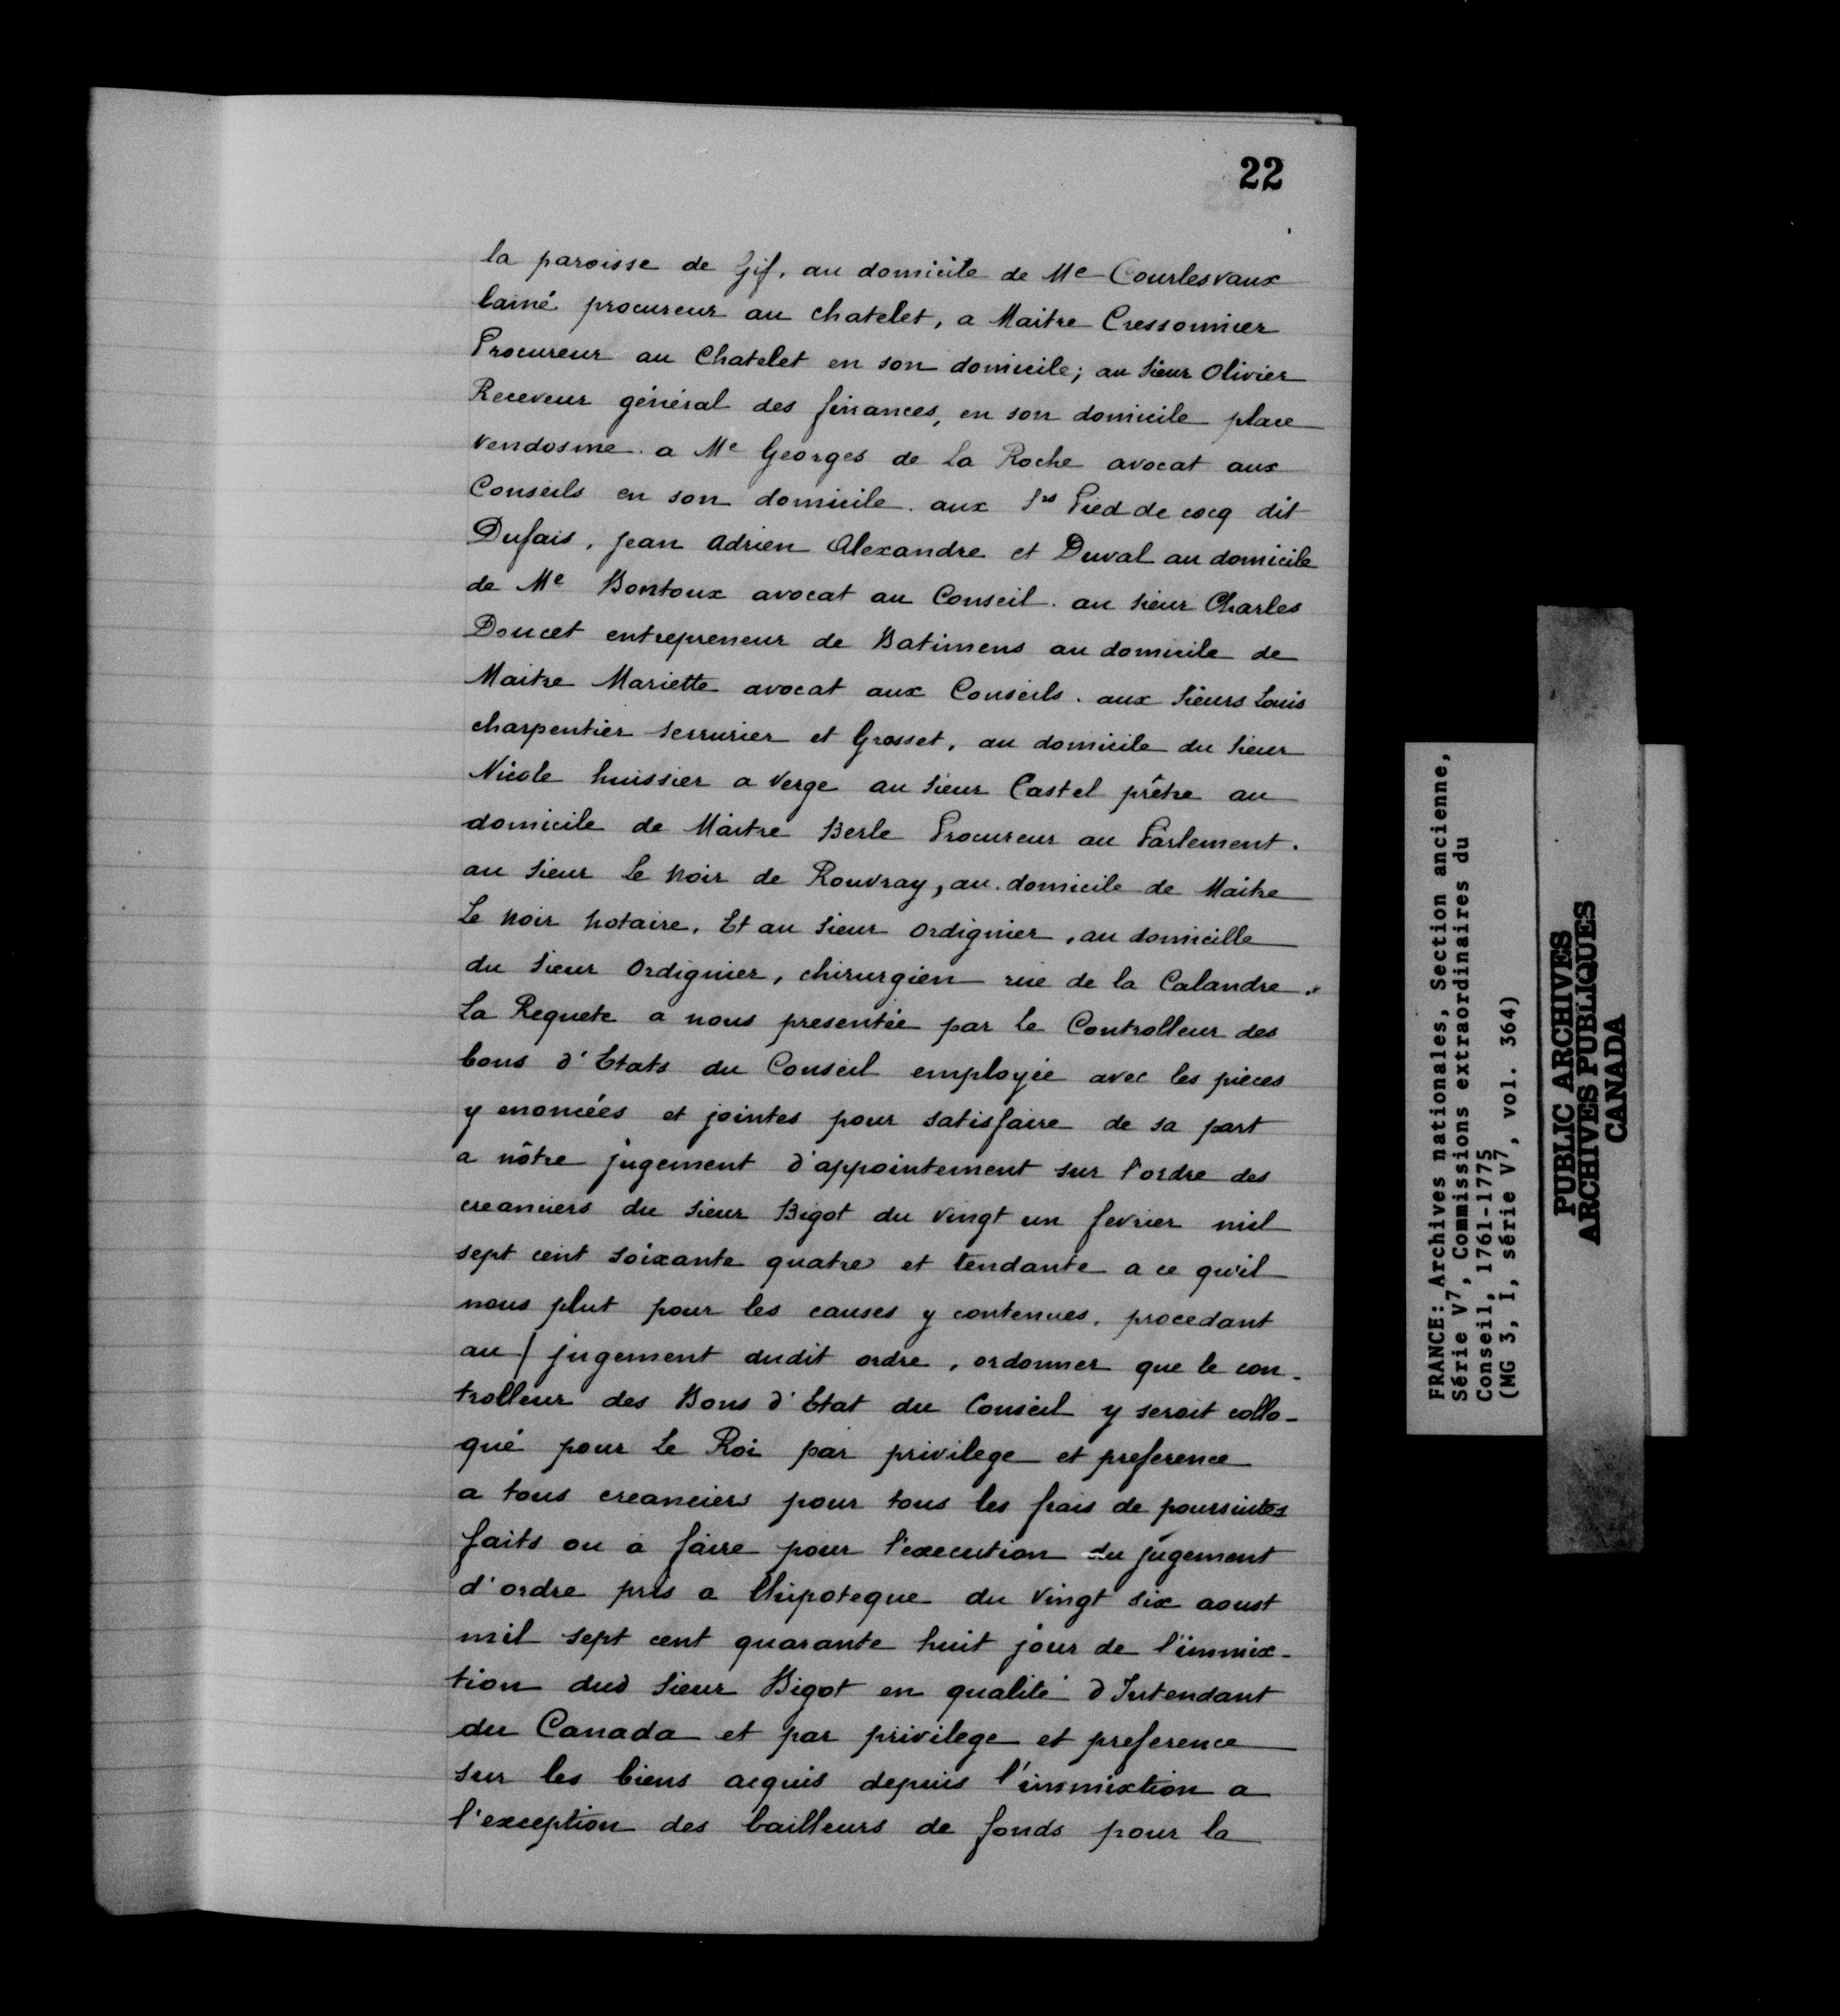 22
la paroisse de Gif, au domicile de Me Courlesvaux
lainé procureur au chatelet, a Maitre Cressonnier
Procureur au Chatelet en son domicile; au Sieur Olivier
Receveur général des finances, en son domicile place
Vendosme. a Me Georges de La Roche avocat aux
Conseils en son domicile. aux Srs Pied de cocq dit
Dufais, Jean Adrien Alexandre et Duval au domicile
de Me Bontoux avocat au Conseil. au Sieur Charles
Doucet entrepreneur de Batimens au domicile de
Maitre Mariette avocat aux Conseils. aux Sieurs Louis
charpentier Serrurier et Grosset, au domicile du Sieur
Nicole huissier a Verge au Sieur Castel prêtre au
domicile de Maitre Berle Procureur au Parlement.
au Sieur Le Noir de Rouvray, au domicile de Maitre
Le Noir Notaire. Et au Sieur Ordignier, au domicille
du Sieur Ordignier, chirurgien rue de la Calandre."
La Requete a nous presentée par le Controlleur des
bons d'Etats du Conseil employée avec les pieces
y enoncées et jointes pour satisfaire de sa part
a nôtre jugement d'appointement sur l'ordre des
creanciers du Sieur Bigot du vingt un fevrier mil
sept cent soixante quatre et tendante a ce qu'il
nous plut pour les causes y contenues, procedant
au jugement dudit ordre, ordonner que le con-
trolleur des Bons d'Etat du Conseil y seroit collo-
qué pour Le Roi par privilege et preference
a tous creanciers pour tous les frais de poursuites
faits ou à faire pour l'execution du jugement
d'ordre pris a l'hipoteque du vingt six aoust
mil sept cent quarante huit jour de l'immix-
tion dud Sieur Bigot en qualité d'Intendant
du Canada et par privilege et preference
sur les biens acquis depuis l'immixtion a
l'exception des bailleurs de fonds pour la
FRANCE: Archives nationales, Section ancienne,
Série V7, Commissions extraordinaires du
Conseil, 1761-1775
(MG 3, I, série V7, vol. 364)
PUBLIC ARCHIVES
ARCHIVES PUBLIQUES
CANADA